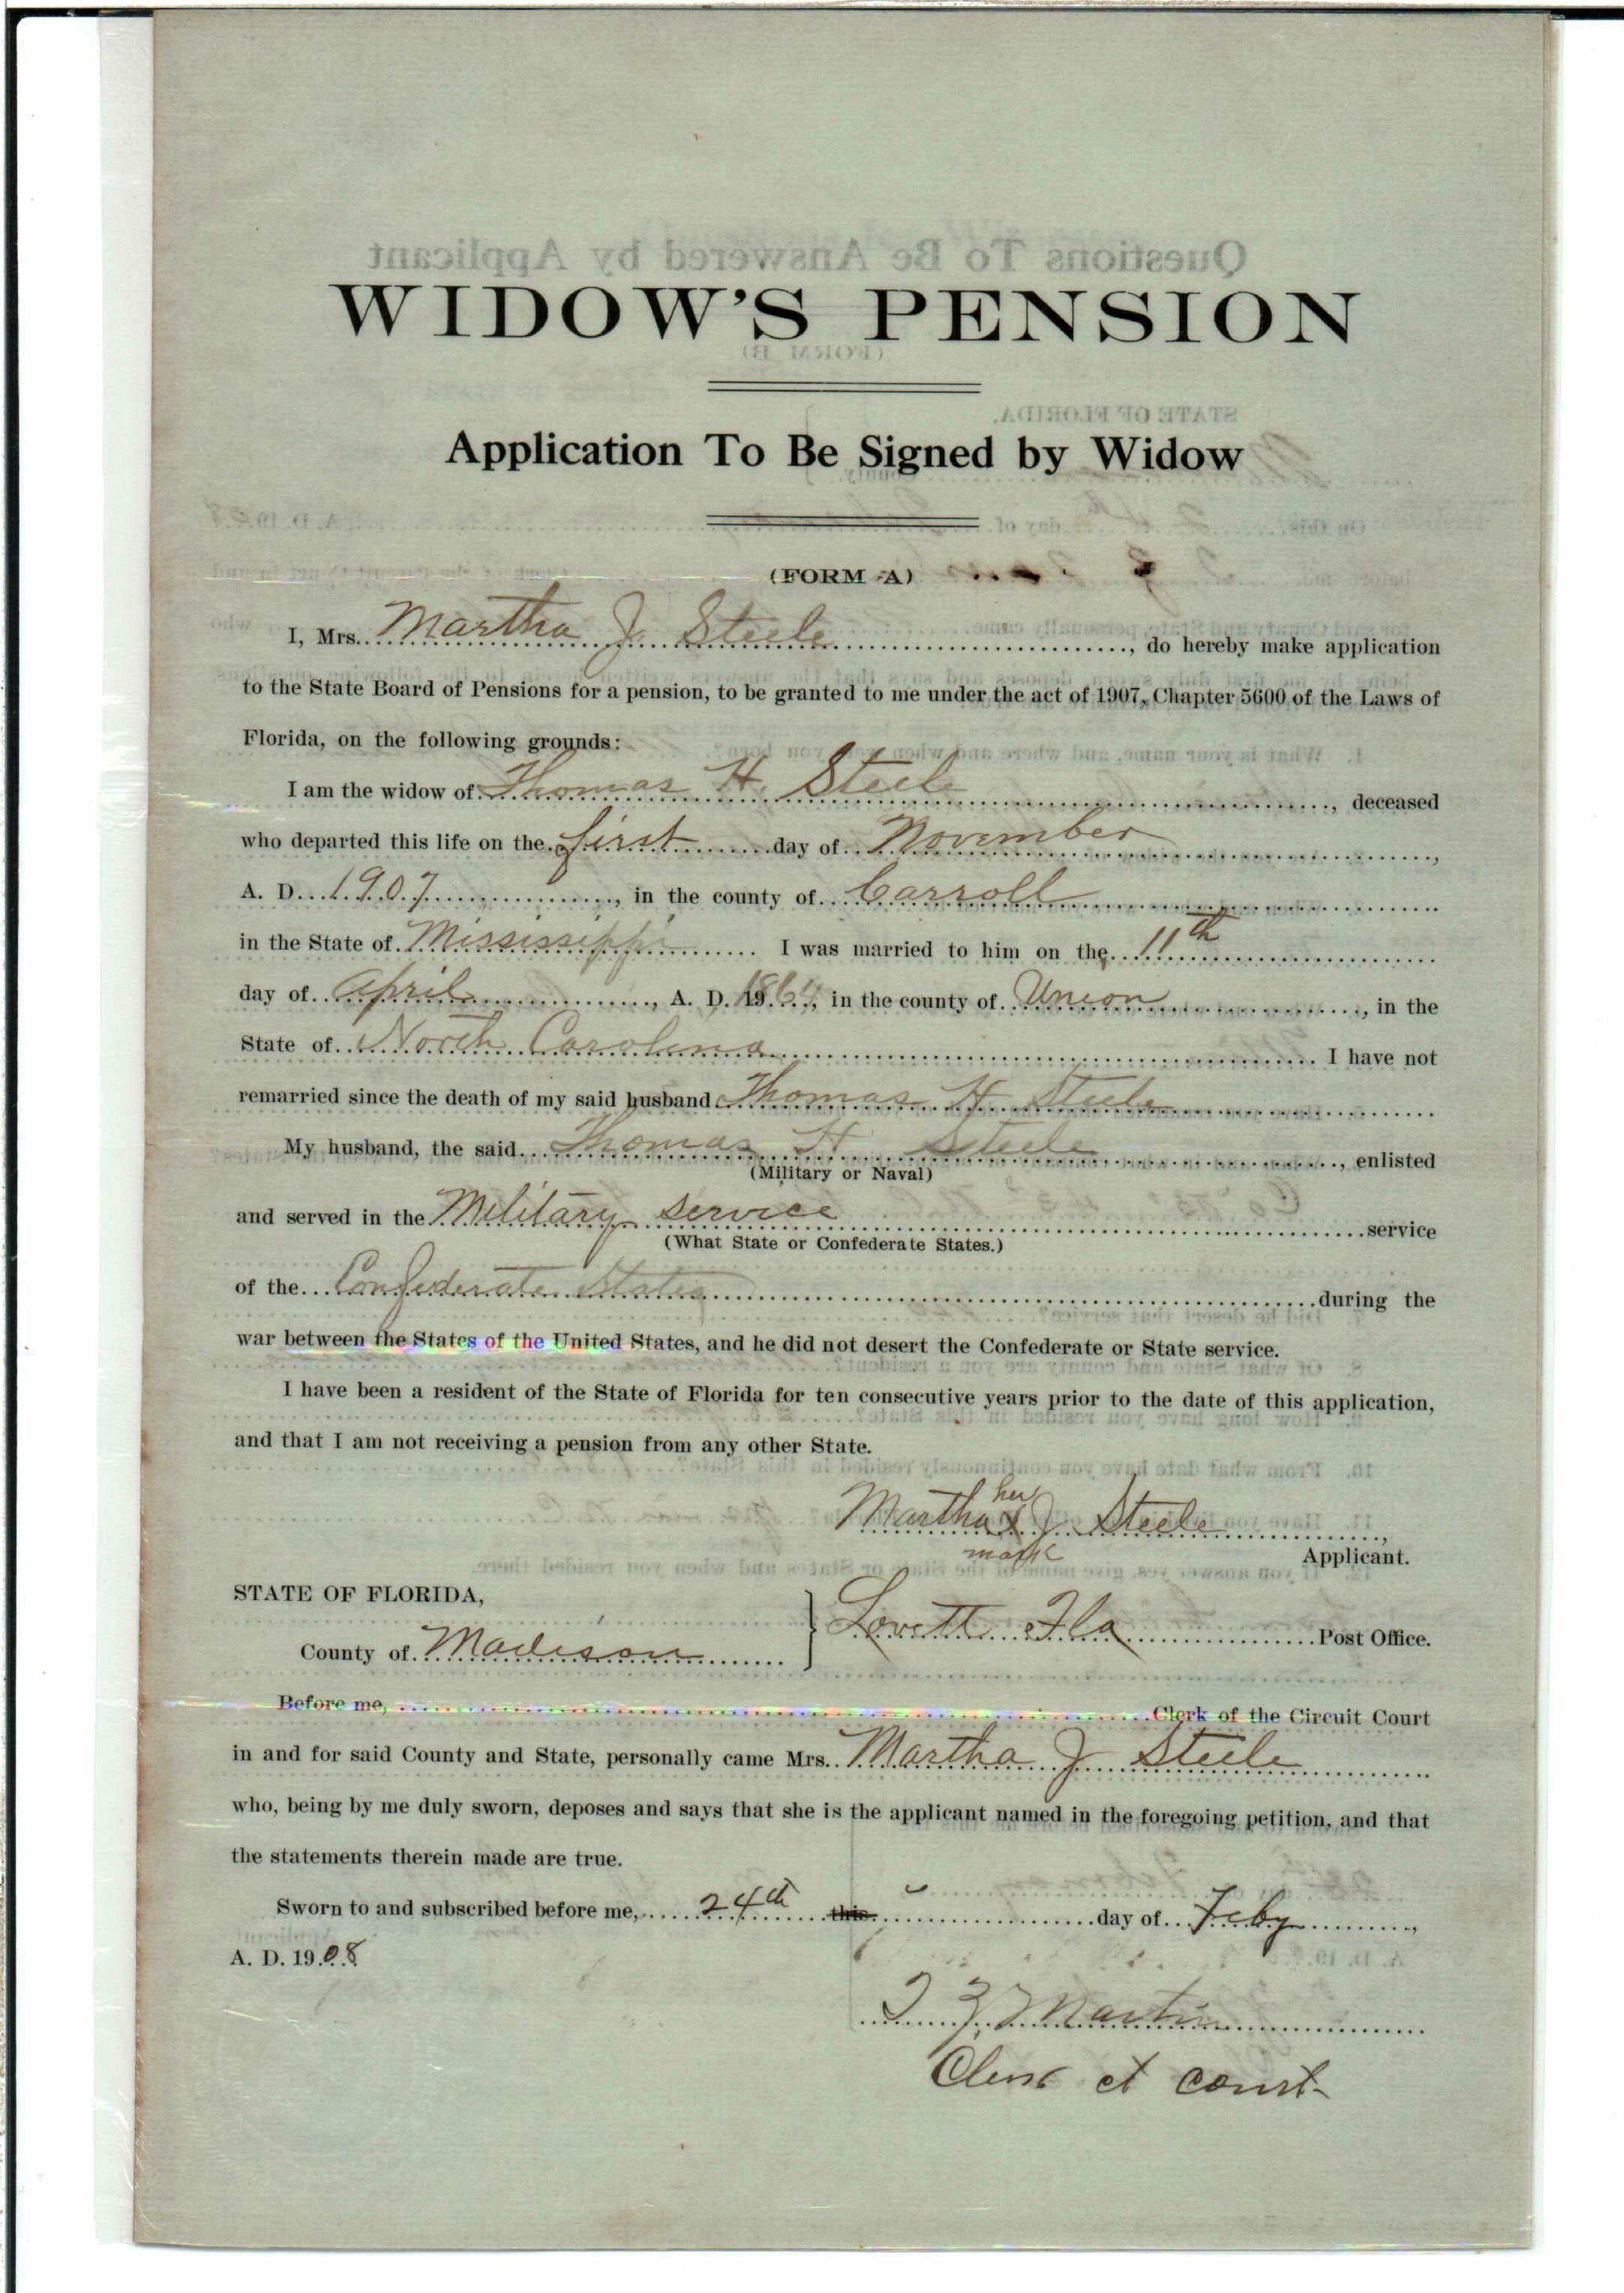 WIDOW'S PENSION
Application To Be Signed by Widow
(FORM A)
I, Mrs. Martha J. Steele, do hereby make application
to the State Board of Pensions for a pension, to be granted to me under the act of 1907, Chapter 5600 of the Laws of
Florida, on the following grounds:
I am the widow of Thomas H. Steele, deceased
who departed this life on the first day of November,
A. D. 1907, in the county of Carroll
in the State of Mississippi I was married to him on the 11th
day of April, A. D. 1864, in the county of Union, in the
State of North Carolina I have not
remarried since the death of my said husband Thomas H. Steele
My husband, the said Thomas H Steele, enlisted
(Military or Naval)
and served in the Military service service
(What State or Confederate States.)
of the Confederate States during the
war between the States of the United States, and he did not desert the Confederate or State service.
I have been a resident of the State of Florida for ten consecutive years prior to the date of this application,
and that I am not receiving a pension from any other State.
her
Martha X J. Steele,
mark
Applicant.
STATE OF FLORIDA,
County of Madison
Lovett Fla Post Office.
Before me, Clerk of the Circuit Court
in and for said County and State, personally came Mrs. Martha J Steele
who, being by me duly sworn, deposes and says that she is the applicant named in the foregoing petition, and that
the statements therein made are true.
Sworn to and subscribed before me, 24th this day of Feby,
A. D. 1908
Martin
Clerk ct court